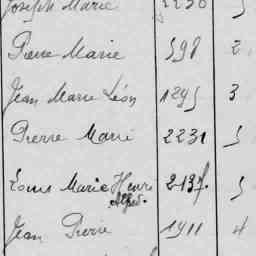 Joseph Marie 2250 5
Pierre Marie 598 2
Jean Marie Léon 1295 3
Pierre Marie 2231 5
Louis Marie Henri 2137 5
Alfred.
Jean Pierre 1911 4